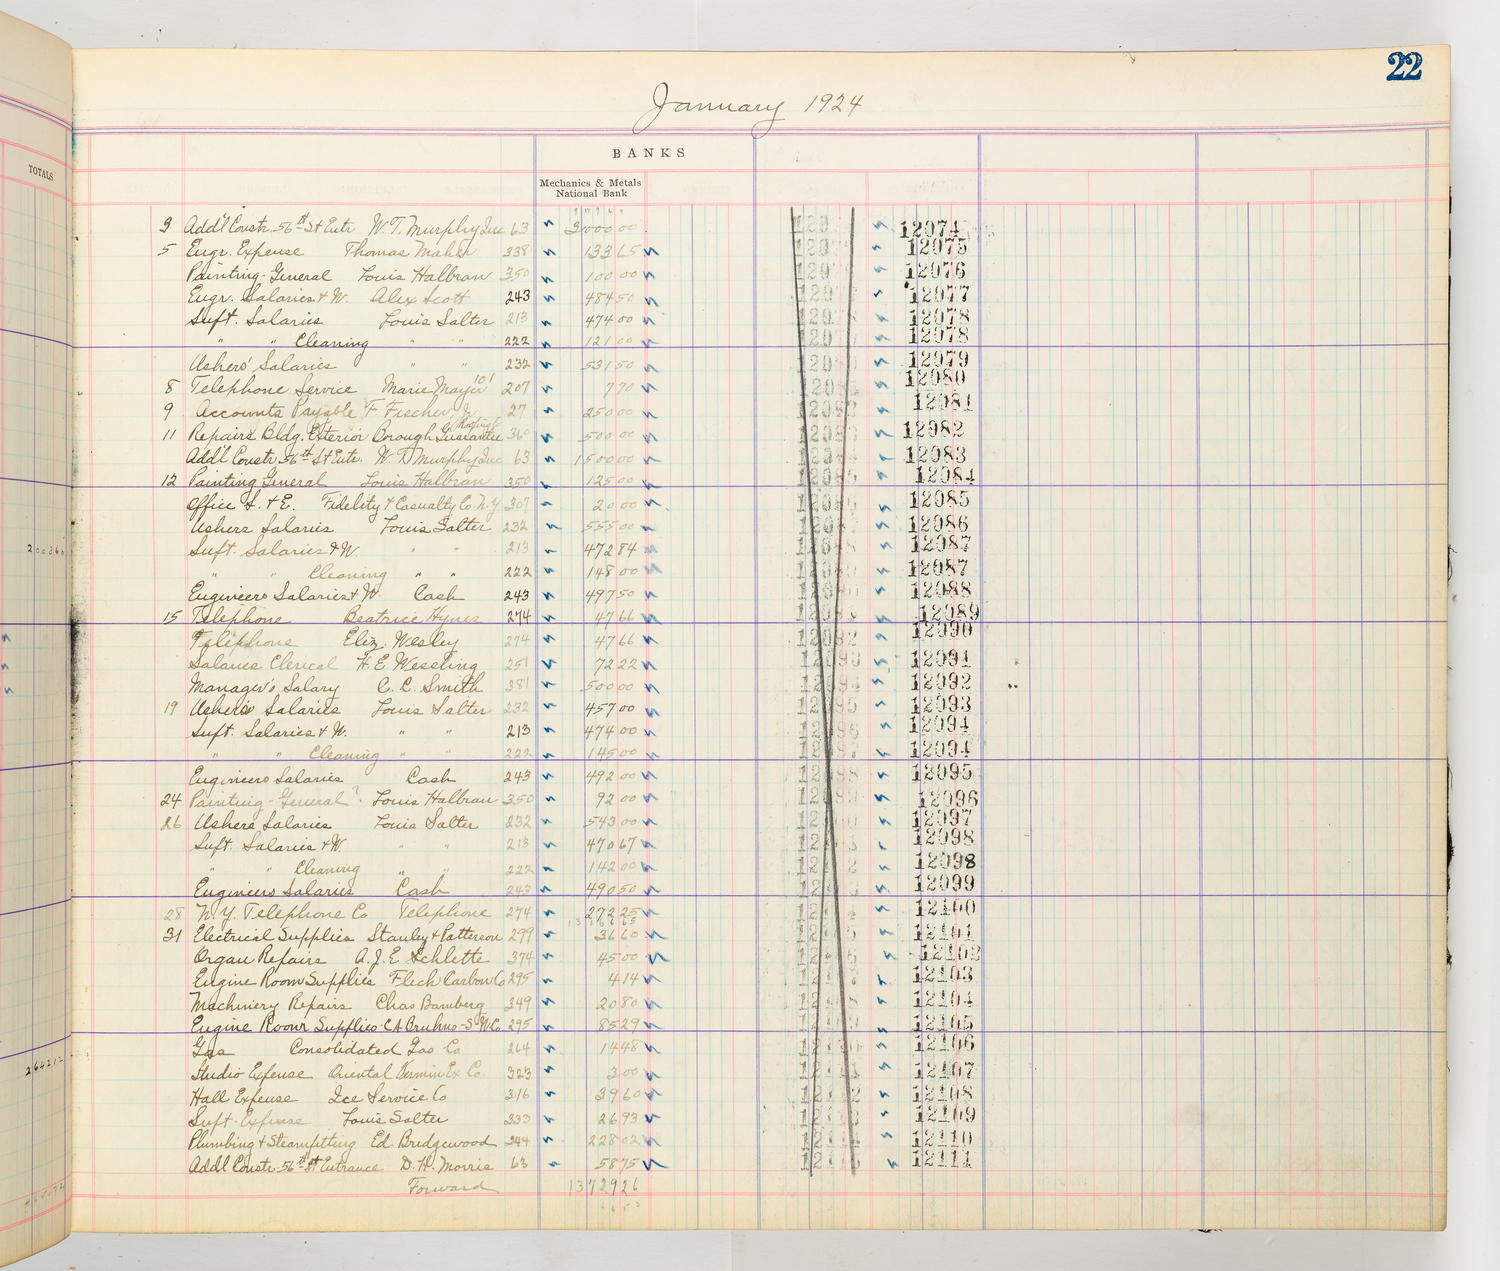 22
January 1924
TOTALS
BANKS
Mechanics & Metals National Bank
3 Add'l Constr. 56th St Entr. W. T. Murphy Inc 63 3000 00 12074
5 Engr. Expense Thomas Maher 338 133 65 12075
Painting-General Louis Halbran 350 100 00 12076
Engr. Salaries & W. Alex Scott 243 484 50 12077
Supt. Salaries Louis Salter 213 474 00 12078
" " Cleaning " " 222 121 00 12078
Ushers' Salaries " " 232 531 50 12079
8 Telephone Service Marie Mayer 207 7 70 12080
9 Accounts Payable F. Fischer Jr 27 250 00 12081
11 Repairs Bldg. Exterior Borough Guarantee Roofing Co 360 500 00 12082
Add'l Constr 56th St Entr. W. T. Murphy Inc 63 1500 00 12083
12 Painting General Louis Halbran 350 125 00 12084
Office S. & E. Fidelity & Casualty Co. N.Y 307 20 00 12085
Ushers Salaries Louis Salter 232 555 00 12086
Supt. Salaries & W. " " 213 472 84 12087
" " Cleaning " " 222 148 00 12087
Engineers Salaries & W. Cash 243 497 50 12088
15 Telephone Beatrice Hynes 274 47 66 12089
Telephone Eliz. Wesley 274 47 66 12090
Salaries Clerical H. E. Wessling 251 72 22 12091
Manager's Salary C. C. Smith 381 500 00 12092
19 Ushers Salaries Louis Salter 232 457 00 12093
Supt. Salaries & W. " " 213 474 00 12094
" " Cleaning " " 222 145 00 12094
Engineers Salaries Cash 243 492 00 12095
24 Painting-General ? Louis Halbran 350 92 00 12096
26 Ushers Salaries Louis Salter 232 543 00 12097
Supt. Salaries & W " " 213 470 67 12098
" " Cleaning " " 222 142 00 12098
Engineers Salaries Cash 243 490 50 12099
28 N.Y. Telephone Co Telephone 274 272 25 12100
31 Electrical Supplies Stanley & Patterson 299 36 60 12101
Organ Repairs A. J. E Schlette 374 45 00 12102
Engine Room Supplies Flech Carbon Co 295 4 14 12103
Machinery Repairs Chas Bamberg 349 20 80 12104
Engine Room Supplies C A Bruhns-S W Co 295 85 29 12105
Gas Consolidated Gas Co 264 14 48 12106
Studio Expense Oriental Vermin Ex Co 323 3 00 12107
Hall Expense Ice Service Co 316 39 60 12108
Supt. Expense Louis Salter 333 26 93 12109
Plumbing & Steamfitting Ed. Bridgewood 344 228 02 12110
Add'l Constr. 56th St Entrance D. H. Morris 63 58 75 12111
Forward 13729 26